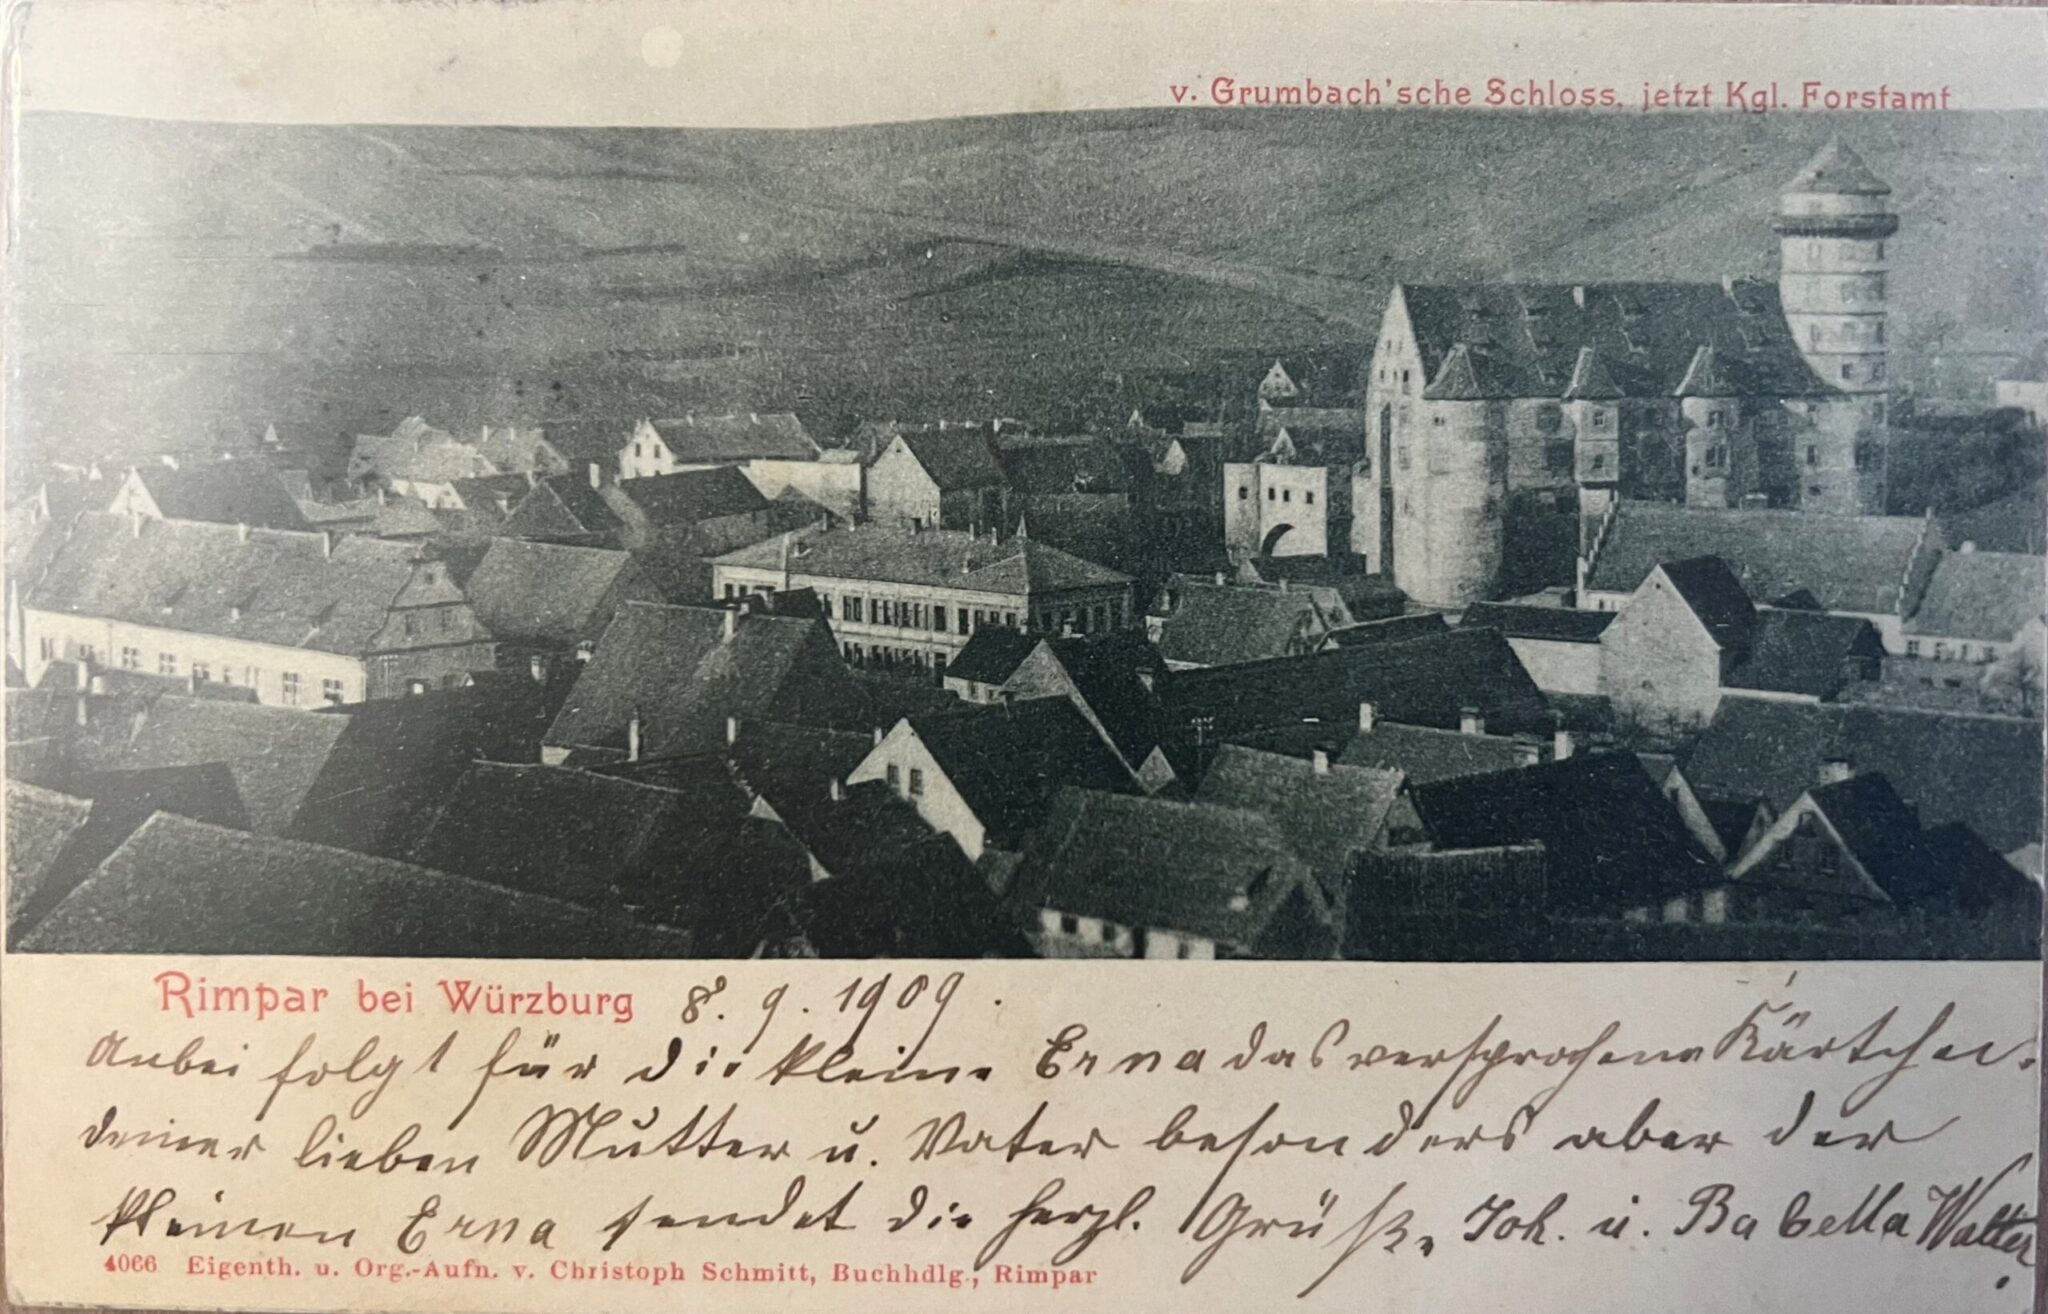 v. Grumbach'sche Schloss, jetzt Kgl. Forstamt
Rimpar bei Würzburg 8. 9. 1909.
Anbei folgt für die kleine Erna das versprochene Kärtchen.
deiner lieben Mutter u. Vater besonders aber der
kleinen Erna sendet die herzl. Grüße, Joh. u. Babella Walter
4066 Eigenth. u. Org.-Aufn. v. Christoph Schmitt, Buchhdlg., Rimpar